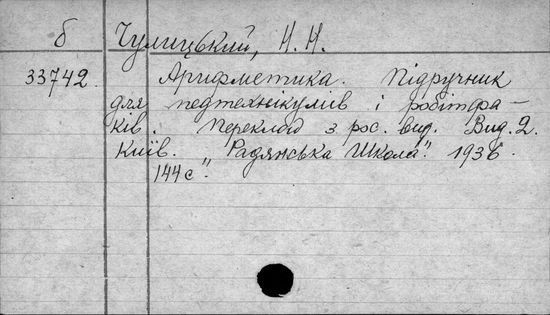 б Чулицький, Н. Н.
33742. Арифметика. Підручник
для педтехнікумів і робітфа-
ків. Переклад з рос. вид. Вид. 2.
Київ. "Радянська Школа". 1936.
144 с.